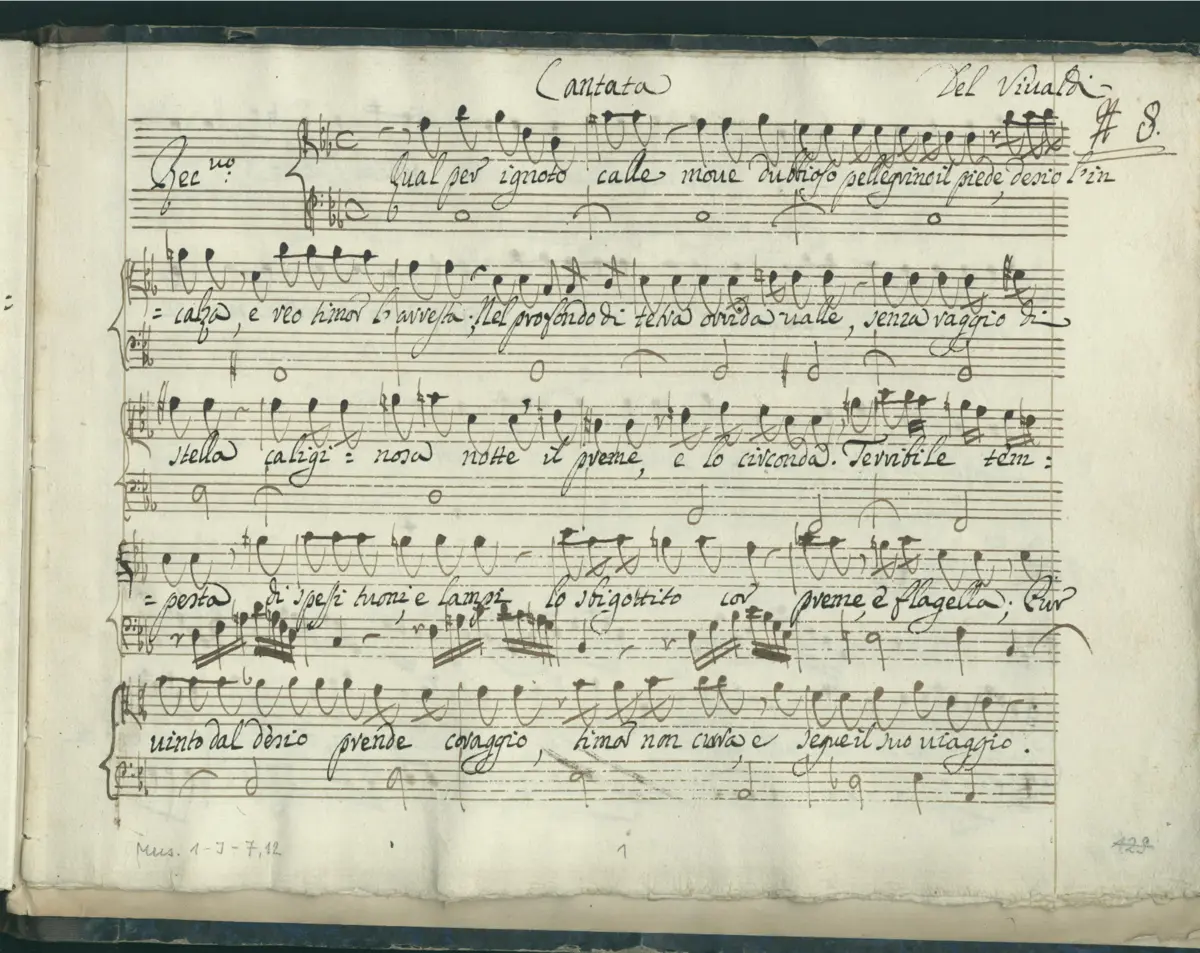 Cantata
Del Viualdi
8.
Rec.uo
Qual per ignoto calle moue dubbioso pellegrino il piede, desio l'in
= calza, e reo timor l'arresta. Nel profondo di tetra orrida ualle, senza raggio di
stella caligi = nosa notte il preme, e lo circonda. Terribile tem =
= pesta di spessi tuoni, e lampi lo sbigottito cor preme, e flagella; Pur
uinto dal desio prende coraggio, timor non cura, e segue il suo uiaggio.
Mus. 1-J-7,12
1
129